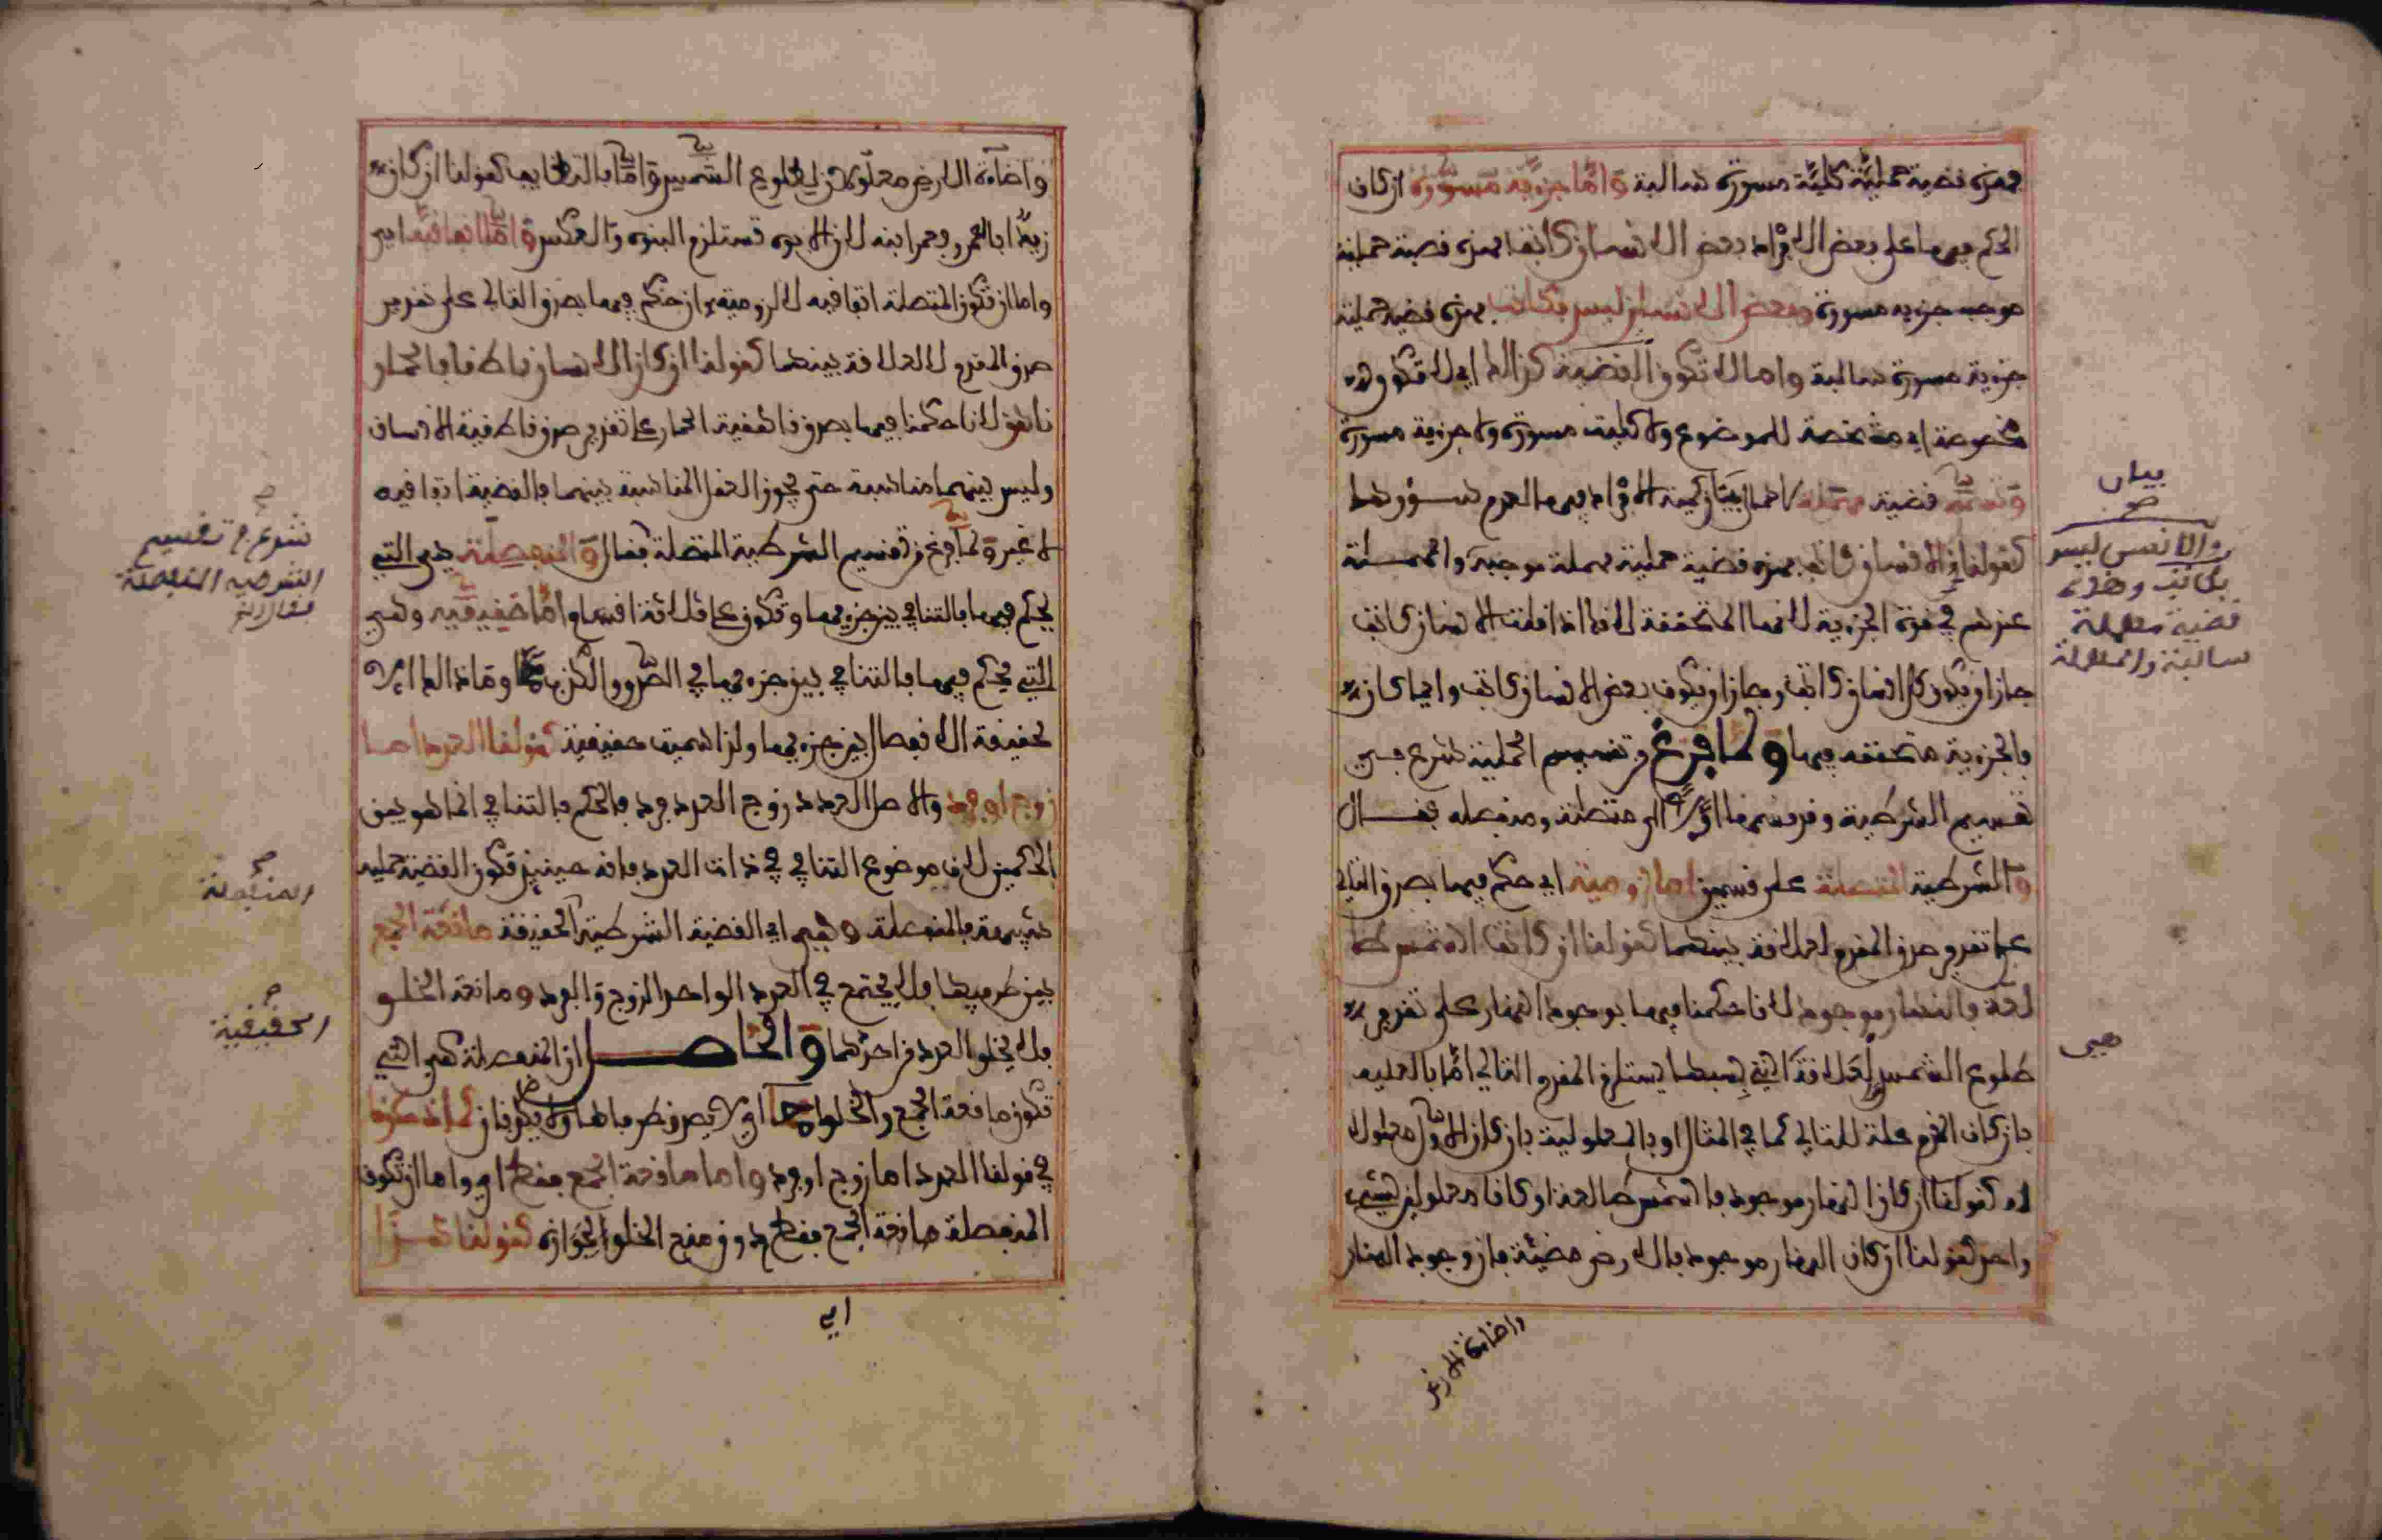 فهذه قضية حملية كلية مسورة سالبة وإما جزئية مسورة ان كان
الحكم فيها على بعض الافراد بعض الانسان كاتب فهذه قضية حملية
موجبه جزيه مسورة وبعض الانسان ليس بكاتب فهذه قضيه حملية
جزيية مسورة سالبة واما ان لا تكون القضية كذالك اي لا تكون
مخصوصة اي مشخصة للموضوع ولا كلية مسورة ولا جزية مسورة
وتسمى قضية مهملة لاهمال بيان كمية الافراد فيها لعدم سورها
كقولنا الانسان كاتب فهذه قضية حملية مهملة موجبة والمهملة
عندهم في قوة الجزية لانها المتحققة لانه اذا قلت الانسان كاتب
جاز ان يكون كل انسان كاتبا وجاز ان يكون بعض الانسان كاتب وايما كان
فالجزية متحققه فيها ولما فرغ من تقسيم الحملية شرع في
تقسيم الشرطية وقد قسمها اولا الى متصلة ومنفصله فقال
والشرطية المتصلة على قسمين اما لزومية اي حكم فيها بصدق التالي
على تقدير صدق المقدم لعلاقة بينهما كقولنا ان كانت الشمس طا
لعة فالنهار موجود لانا حكمنا فيها بوجود النهار على تقدير
طلوع الشمس لعلاقة التي بسببها يستلزم المقدم التالي اما بالعليه
بان كان المقدم علة للتالي كما في المثال او بالمعلولية بان كان الاول معلولا
له كقولنا ان كان النهار موجود فالشمس طالعة او كانا معلولين لشيء
واحد كقولنا ان كان النهار موجود فالارض مضيئة فان وجود النهار
واضاءة الارض
بيان
صح
والانسان ليس
بكاتب وهذه
قضية مهملة
سالبة والمهملة
هي
واضاءة الارض معلولان لطلوع الشمس واما بالتضايف كقولنا ان كان
زيدا ابا لعمرو فعمر ابنه لان الابوه تستلزم البنوه والعكس واما اتفاقية اي
واما ان تكون المتصلة اتفاقيه لا لزومية ان حكم فيها بصدق التالي على تقدير
صدق المقدم لا لعلاقة بينهما كقولنا ان كان الانسان ناطقا فالحمار
ناهق لانا حكمنا فيها بصدق ناهقية الحمار على تقدير صدق ناطقية الانسان
وليس بينهما مناسبة حتى يجوز العقل المناسبة بينهما فالقضية اتفاقيه
لا غير ولما فرغ من تقسيم الشرطية المتصلة فقال والمنفصلة هي التي
يحكم فيها بالتنافي بين جزءيها وتكون على ثلاثة اقسام واما حقيقيه وهي
التي يحكم فيها بالتنافي بين جزءيها في الصدق والكذب معا وما ذالك الا
لحقيقة الانفصال بين جزءيها ولذا سميت حقيقية كقولنا العدد اما
زوج او فرد والاصل العدد زوج العدد فرد فالحكم بالتنافي انما هو بين
الحكمين لان موضوع التنافي في ذات العدد فانه حينئذ تكون القضية حمليه
شبيهة بالمنفصلة وهي اي القضية الشرطية الحقيقة مانعة الجمع
بين طرفيها فلا يجتمع في العدد الواحد الزوج والفرد ومانعة الخلو
فلا يخلو العدد من احدهما والحاصل ان المنفصلة هي التي
تكون مانعة الجمع والخلو معا اي لا يصدق طرفاها ولا يكذبان كما ذكرنا
في قولنا العدد اما زوج او فرد واما مانعة الجمع فقط اي واما ان تكون
المنفصلة مانعة الجمع فقط دون منع الخلو لجوازه كقولنا هذا
اي
شرع في تقسيم
الشرطيه المنفصلة
فقال
صح
المنفصلة
صح
الحقيقية